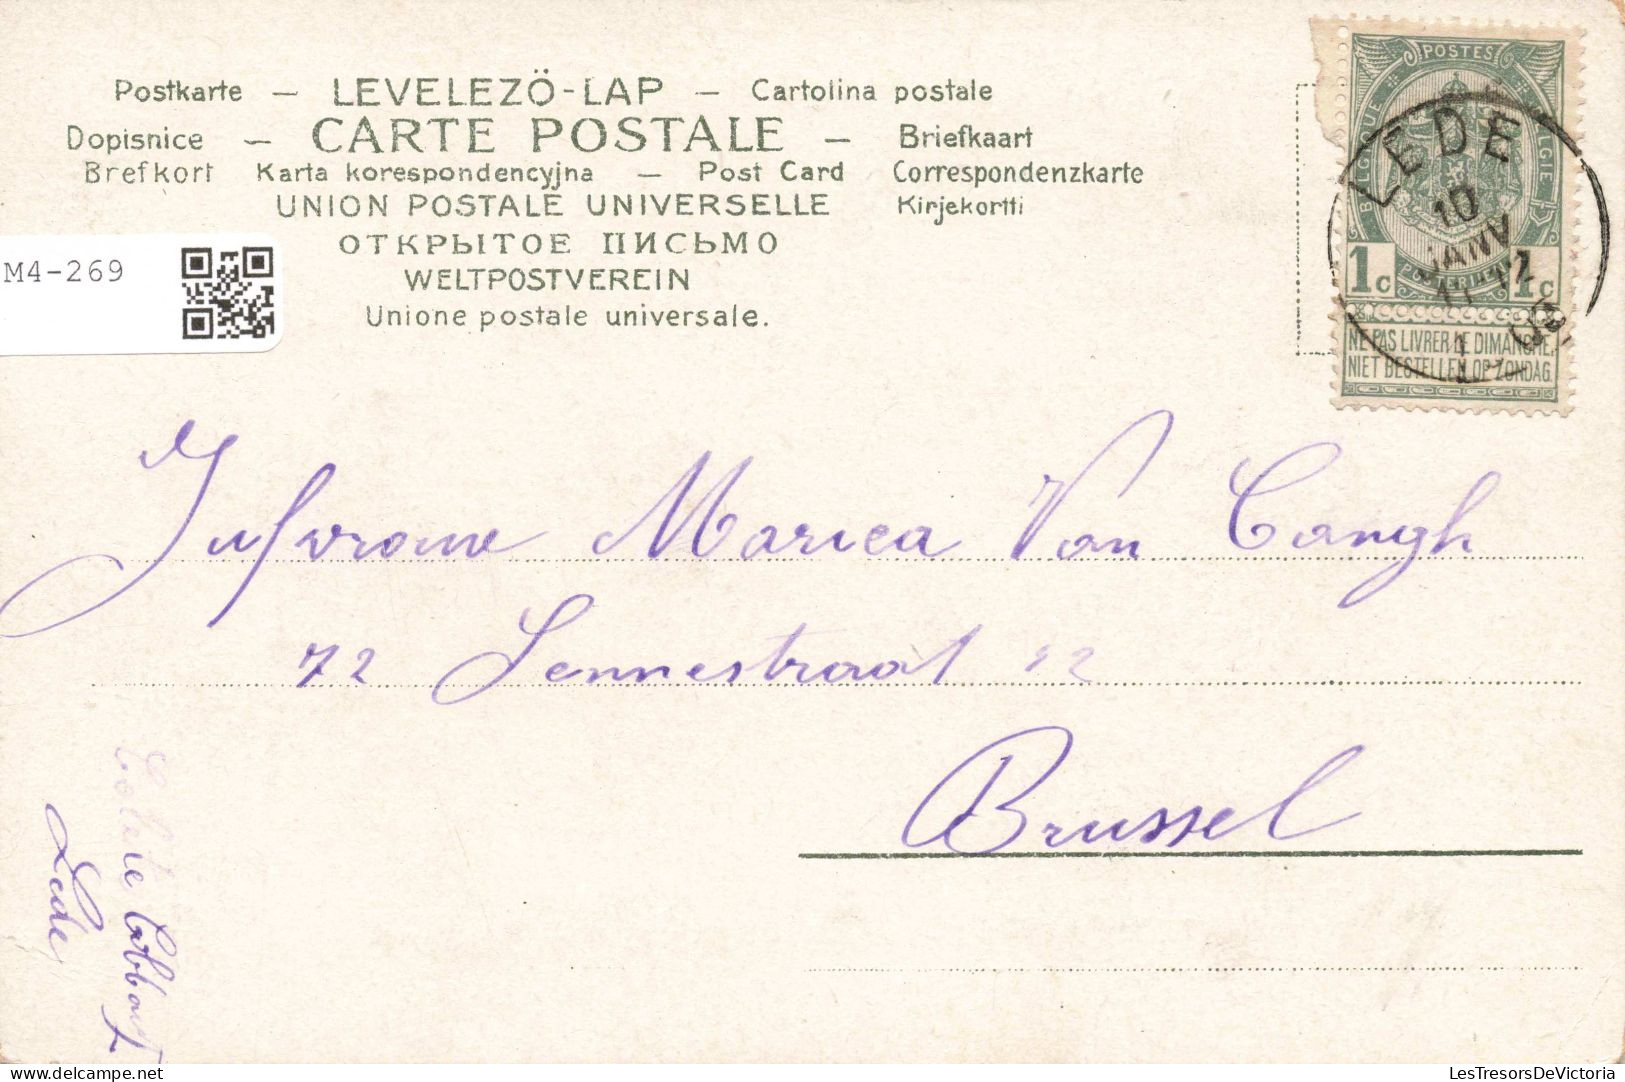 Postkarte — LEVELEZÖ-LAP — Cartolina postale
Dopisnice — CARTE POSTALE — Briefkaart
Brefkort Karta korespondencyjna — Post Card Correspondenzkarte
UNION POSTALE UNIVERSELLE Kirjekortti
ОТКРЫТОЕ ПИСЬМО
WELTPOSTVEREIN
Unione postale universale.
M4-269
POSTES
BELGIQUE
BELGIE
POSTERIJEN
1c 1c
NE PAS LIVRER LE DIMANCHE
NIET BESTELLEN OP ZONDAG
LEDE
10
JANV
11-12
Jufvrouw Maria Van Cangh
72 Sennestraat 72
Brussel
Lede
LesTresorsDeVictoria